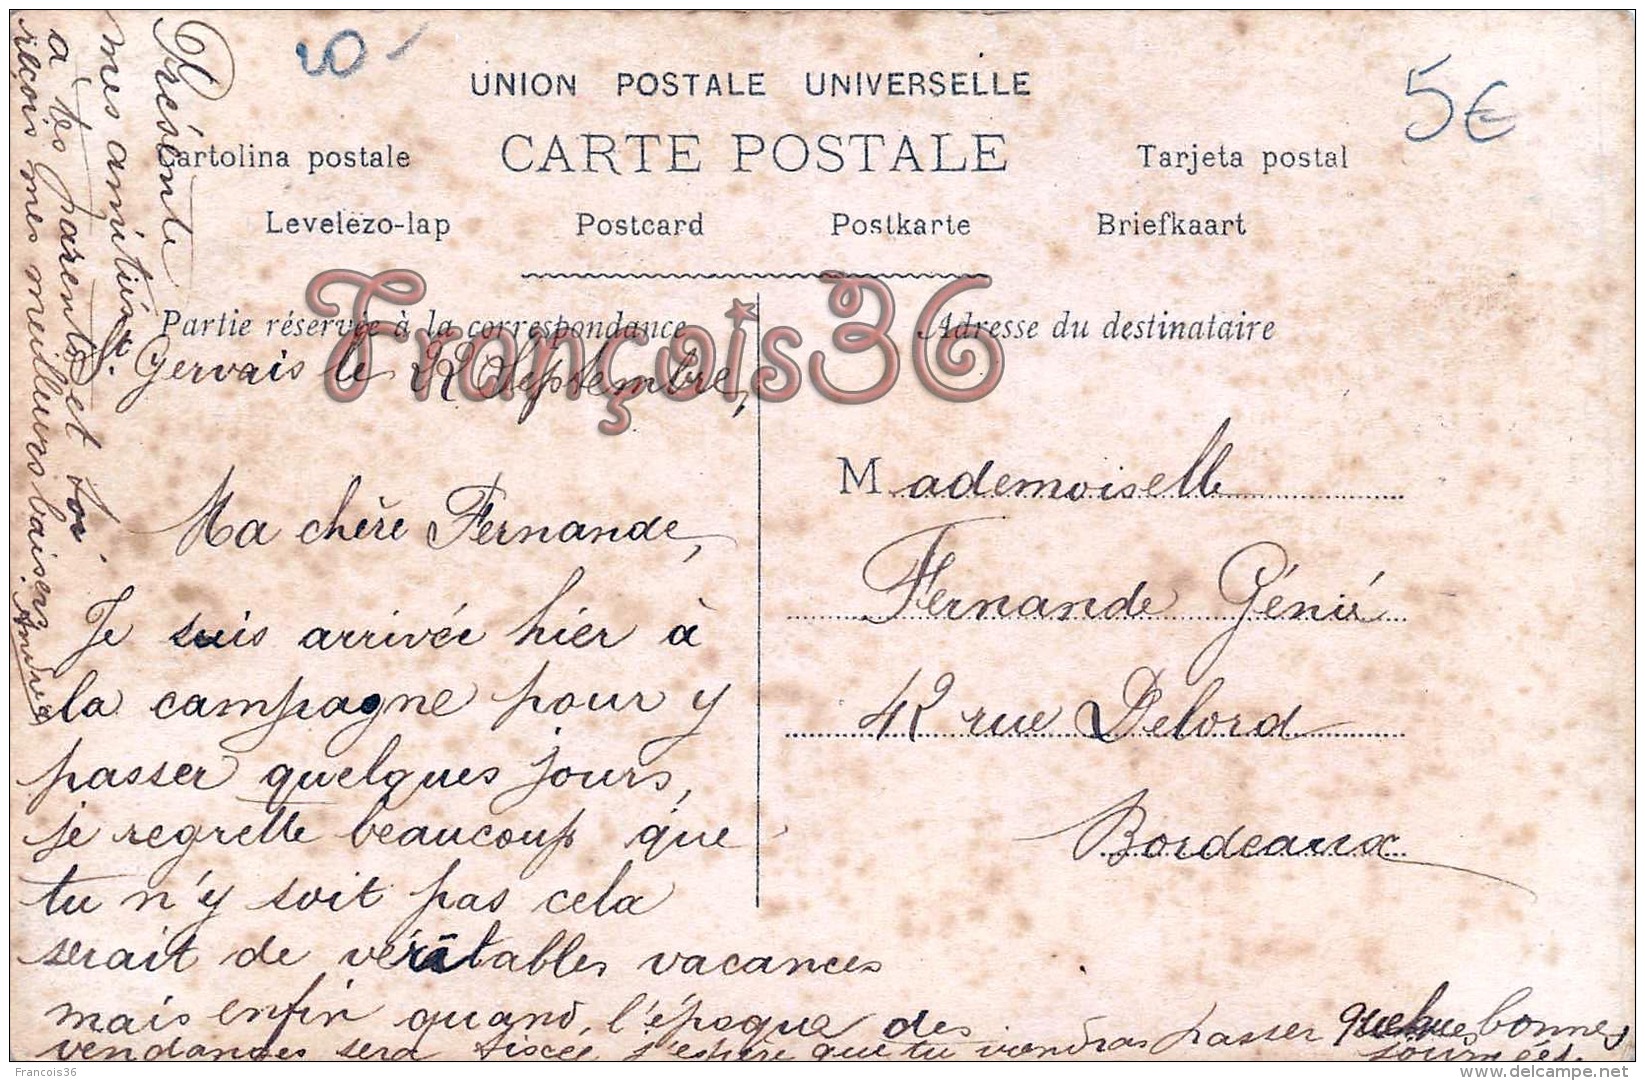 20-
5€
UNION POSTALE UNIVERSELLE
CARTE POSTALE
Cartolina postale
Tarjeta postal
Levelezo-lap
Postcard
Postkarte
Briefkaart
Partie réservée à la correspondance
Adresse du destinataire
François36
St Gervais le 22 Septembre,
Ma chère Fernande,
Je suis arrivée hier à
la campagne pour y
passer quelques jours,
je regrette beaucoup que
tu n'y soit pas cela
serait de véritables vacances
mais enfin quand l'époque des
vendanges sera fixée j'espère que tu viendras passer quelques bonnes
journées.
Présente
mes amitiés
à tes parents et toi
reçois mes meilleurs baisers
Andrée
Mademoiselle
Fernande Génie
42 rue Delord
Bordeaux
François36
www.delcampe.net